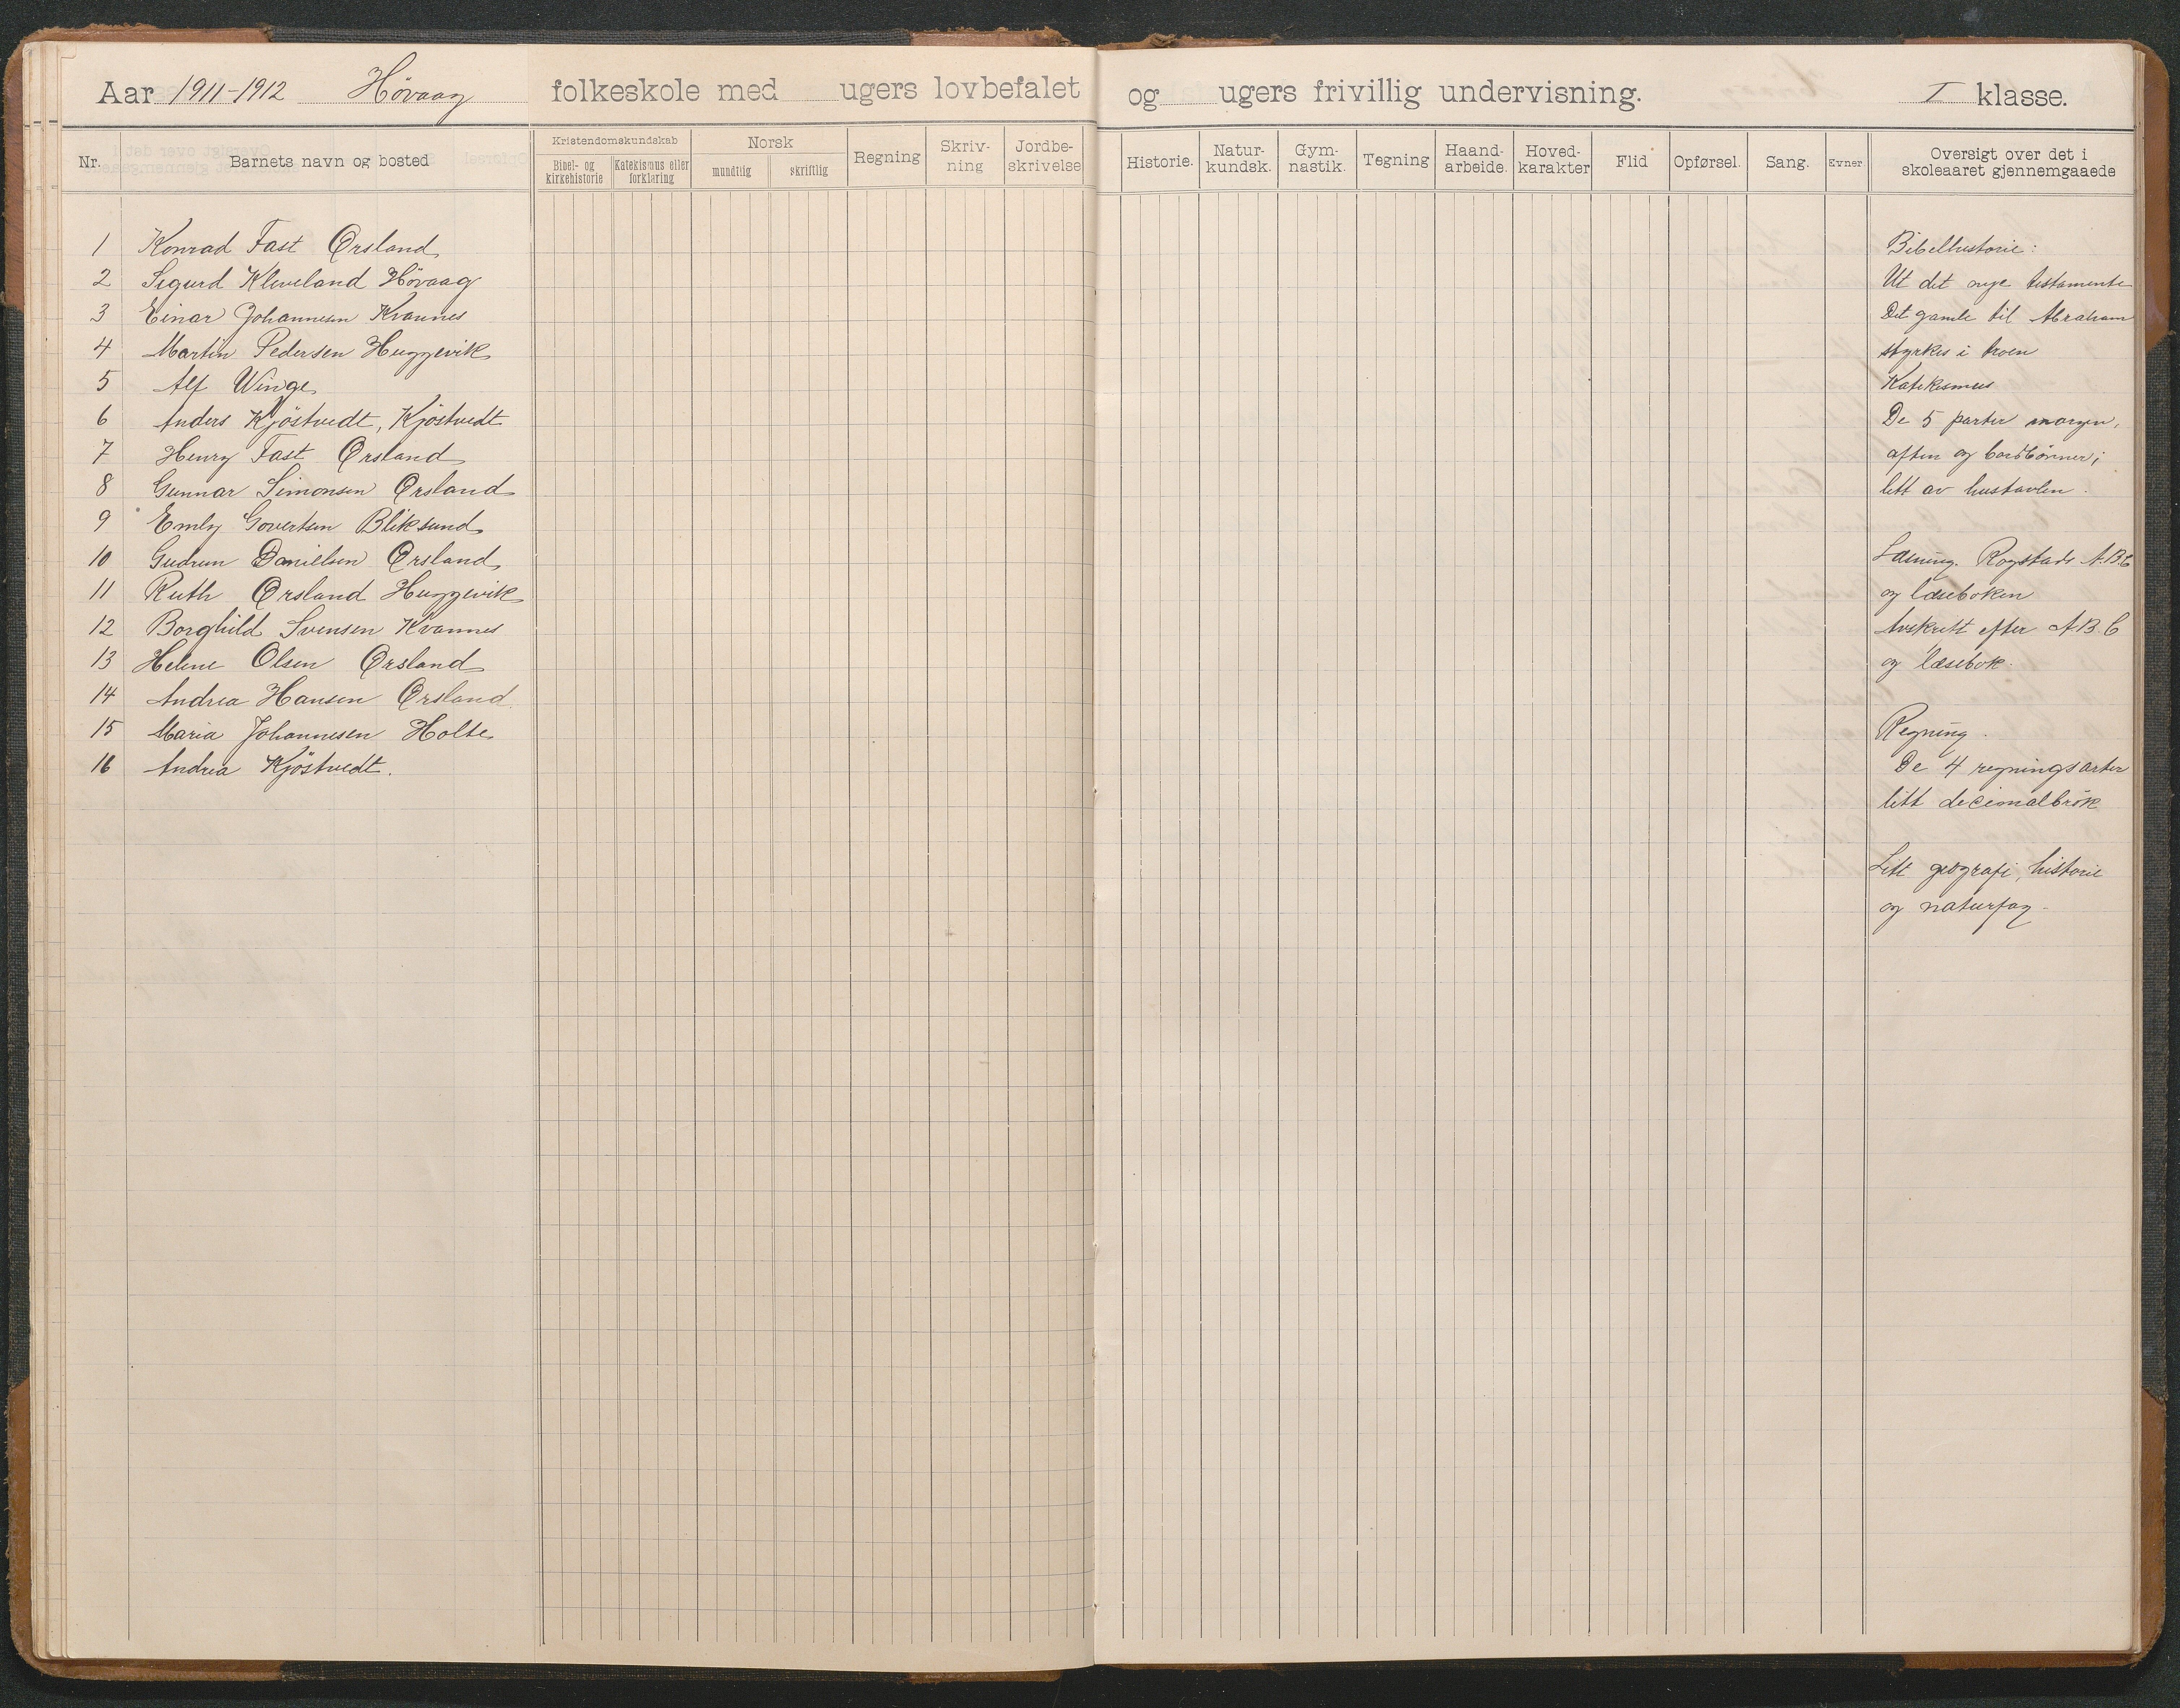 Aar 1911-1912 Høvaag folkeskole med ugers lovbefalet og ugers frivillig undervisning. I klasse.
Nr. Barnets navn og bosted
Kristendomskundskab
Bibel- og kirkehistorie
Katekismus eller forklaring
Norsk
mundtlig
skriftlig
Regning
Skriv-
ning
Jordbe-
skrivelse
Historie.
Natur-
kundsk.
Gym-
nastik.
Tegning
Haand-
arbeide.
Hoved-
karakter
Flid
Opførsel.
Sang.
Evner
Oversigt over det i
skoleaaret gjennemgaaede
1 Konrad Fast Ørsland
2 Sigurd Kleveland Høvaag
3 Einar Johannesen Kvannes
4 Martin Pedersen Huggevik
5 Alf Winge
6 Anders Kjöstvedt, Kjöstvedt
7 Henry Fast Ørsland
8 Gunnar Simonsen Ørsland
9 Emly Govertsen Bliksund
10 Gudrun Danielsen Ørsland
11 Ruth Ørsland Huggevik
12 Borghild Svensen Kvannes
13 Helene Olsen Ørsland
14 Andrea Hansen Ørsland
15 Maria Johannesen Holte
16 Andrea Kjöstvedt.
Bibelhistorie:
Ut det nye testamente
Det gamle til Abraham
styrkes i troen
Katekismus
De 5 parter morgen,
aften og bordbönner;
litt av hustavlen.
Læsning. Rogstads A.B.C
og læseboken
Avskrift efter A.B.C
og læsebok.
Regning.
De 4 regningsarter
litt decimalbrök
Litt geografi, historie
og naturfag.